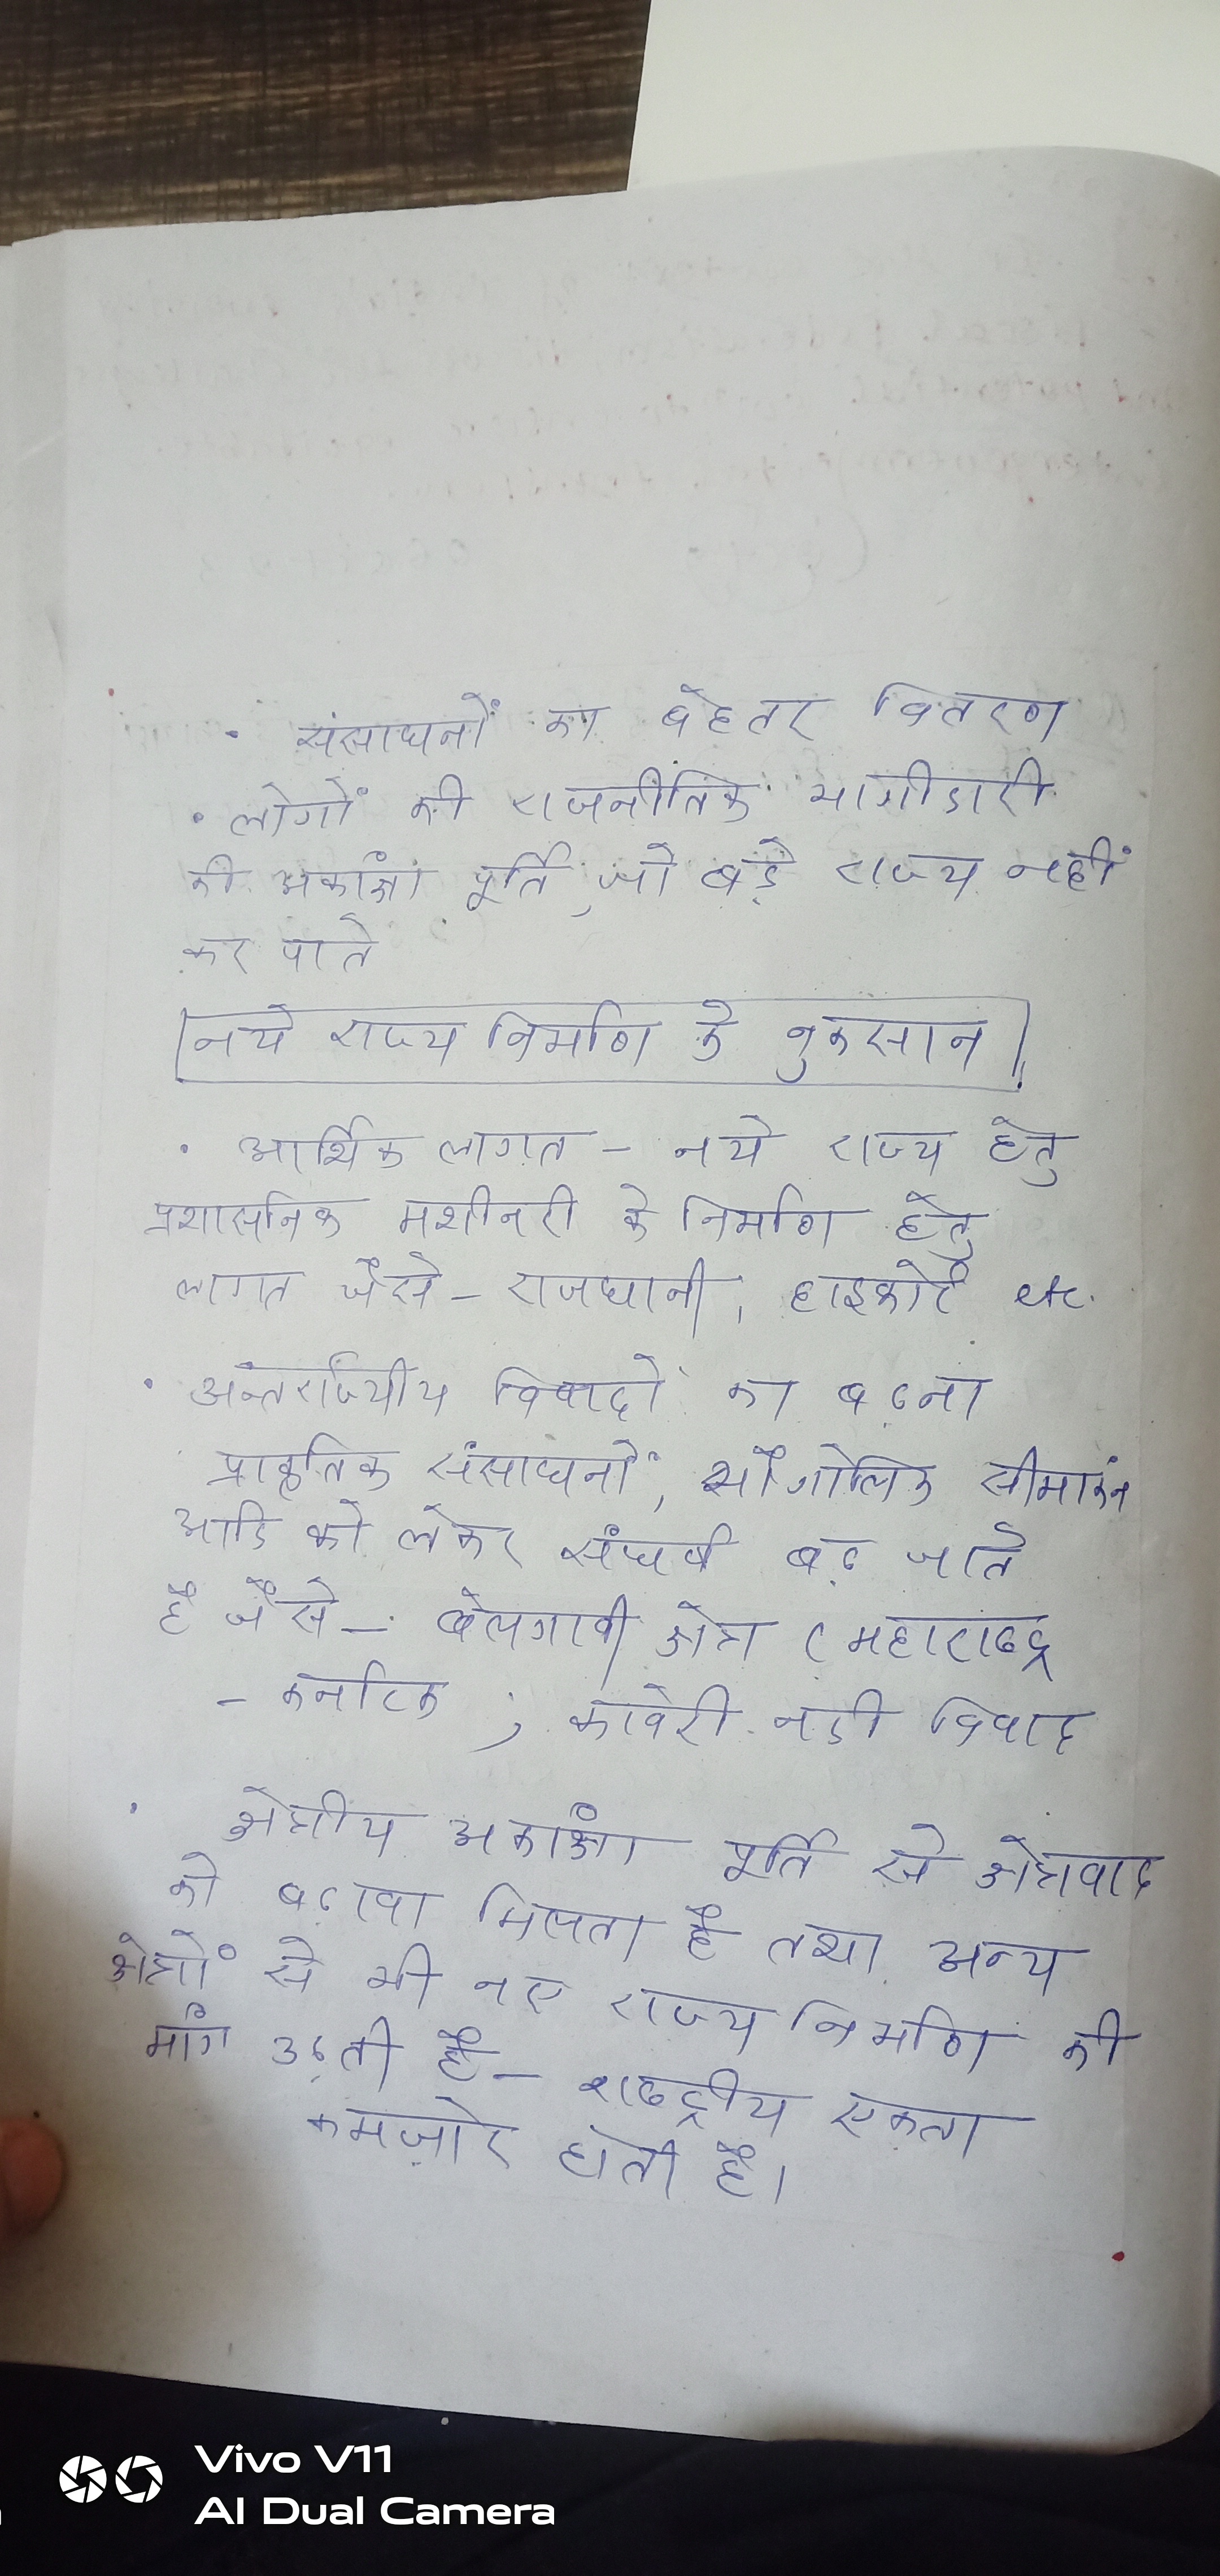 • संसाधनों का बेहतर वितरण
• लोगों की राजनीतिक भागीदारी
की अकांक्षा पूर्ति, जो बड़े राज्य नहीं
कर पाते
नये राज्य निर्माण के नुकसान
• आर्थिक लागत - नये राज्य हेतु
प्रशासनिक मशीनरी के निर्माण हेतु
लागत जैसे - राजधानी, हाइकोर्ट etc.
• अन्तर्राज्यीय विवादों का बढ़ना
प्राकृतिक संसाधनों, भौगोलिक सीमांकन
आदि को लेकर संघर्ष बढ़ जाते
है जैसे - बेलगावी क्षेत्र (महाराष्ट्र
- कर्नाटक ; कावेरी नदी विवाद
• क्षेत्रीय अकांक्षा पूर्ति से क्षेत्रवाद
को बढ़ावा मिलता है तथा अन्य
क्षेत्रों से भी नए राज्य निर्माण की
मांग उठती है - राष्ट्रीय एकता
कमज़ोर होती है।
Vivo V11
AI Dual Camera